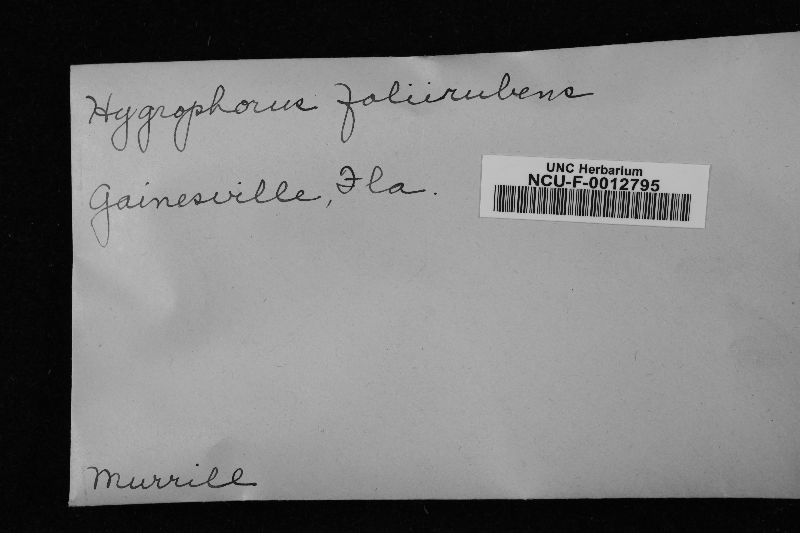 Hygrophorus foliirubens
Gainesville, Fla.
UNC Herbarium
NCU-F-0012795
Murrill